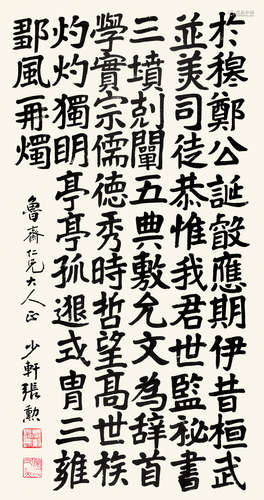 於穆鄭公誕叡應期伊昔桓武
並美司徒恭惟我君世監祕書
三墳剋闡五典敷允文為辞首
學實宗儒德秀時哲望高世族
灼灼獨明亭亭孤邈式胄三雍
鄒風再燭
魯齋仁兄大人正
少軒張勲